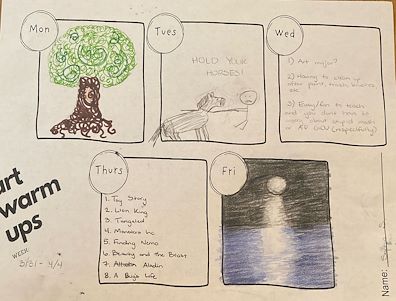 Mon
Tues
Wed
HOLD YOUR
HORSES!
1) Art major?
2) Having to clean up
after paint, trash, brushes,
etc
3) Easy/fun to teach
and you dont have to
worry about stupid math
or
(respectfully)
Thurs
1. Toy Story
2. Lion King
3. Tangled
4. Monsters Inc
5. Finding Nemo
6. Beauty and the Beast
7. Aladdin
8. A Bug's Life
Fri
art
warm
ups
WEEK:
3/31 - 4/4
Name: